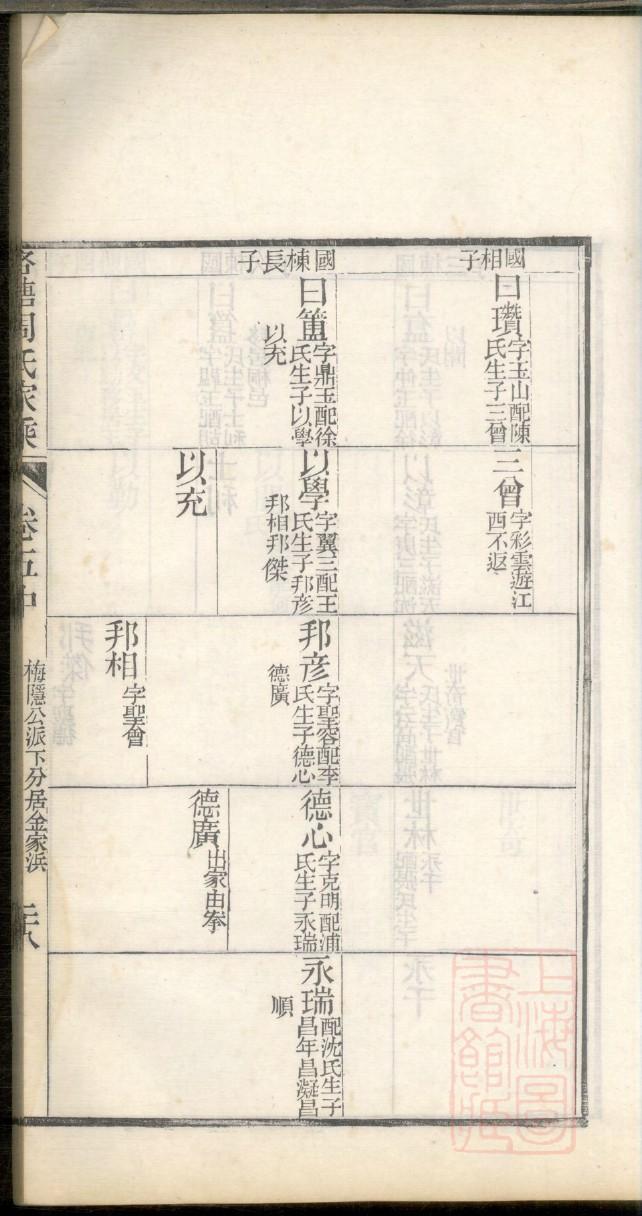 國相子
曰瓚 字玉山配陳
氏生子三曾
三曾 字彩雲遊江
西不返
國棟長子
曰簠 字鼎玉配徐
氏生子以學
以充
以學 字翼三配王
氏生子邦彦
邦相邦傑
邦彦 字聖容配李
氏生子德心
德廣
德心 字克明配浦
氏生子永瑞
永瑞 配沈氏生子
昌年昌凝昌
順
以充
邦相 字聖會
德廣 出家由拳
周氏家乘
卷五中
梅隱公派下分居金家浜
上海圖書館藏